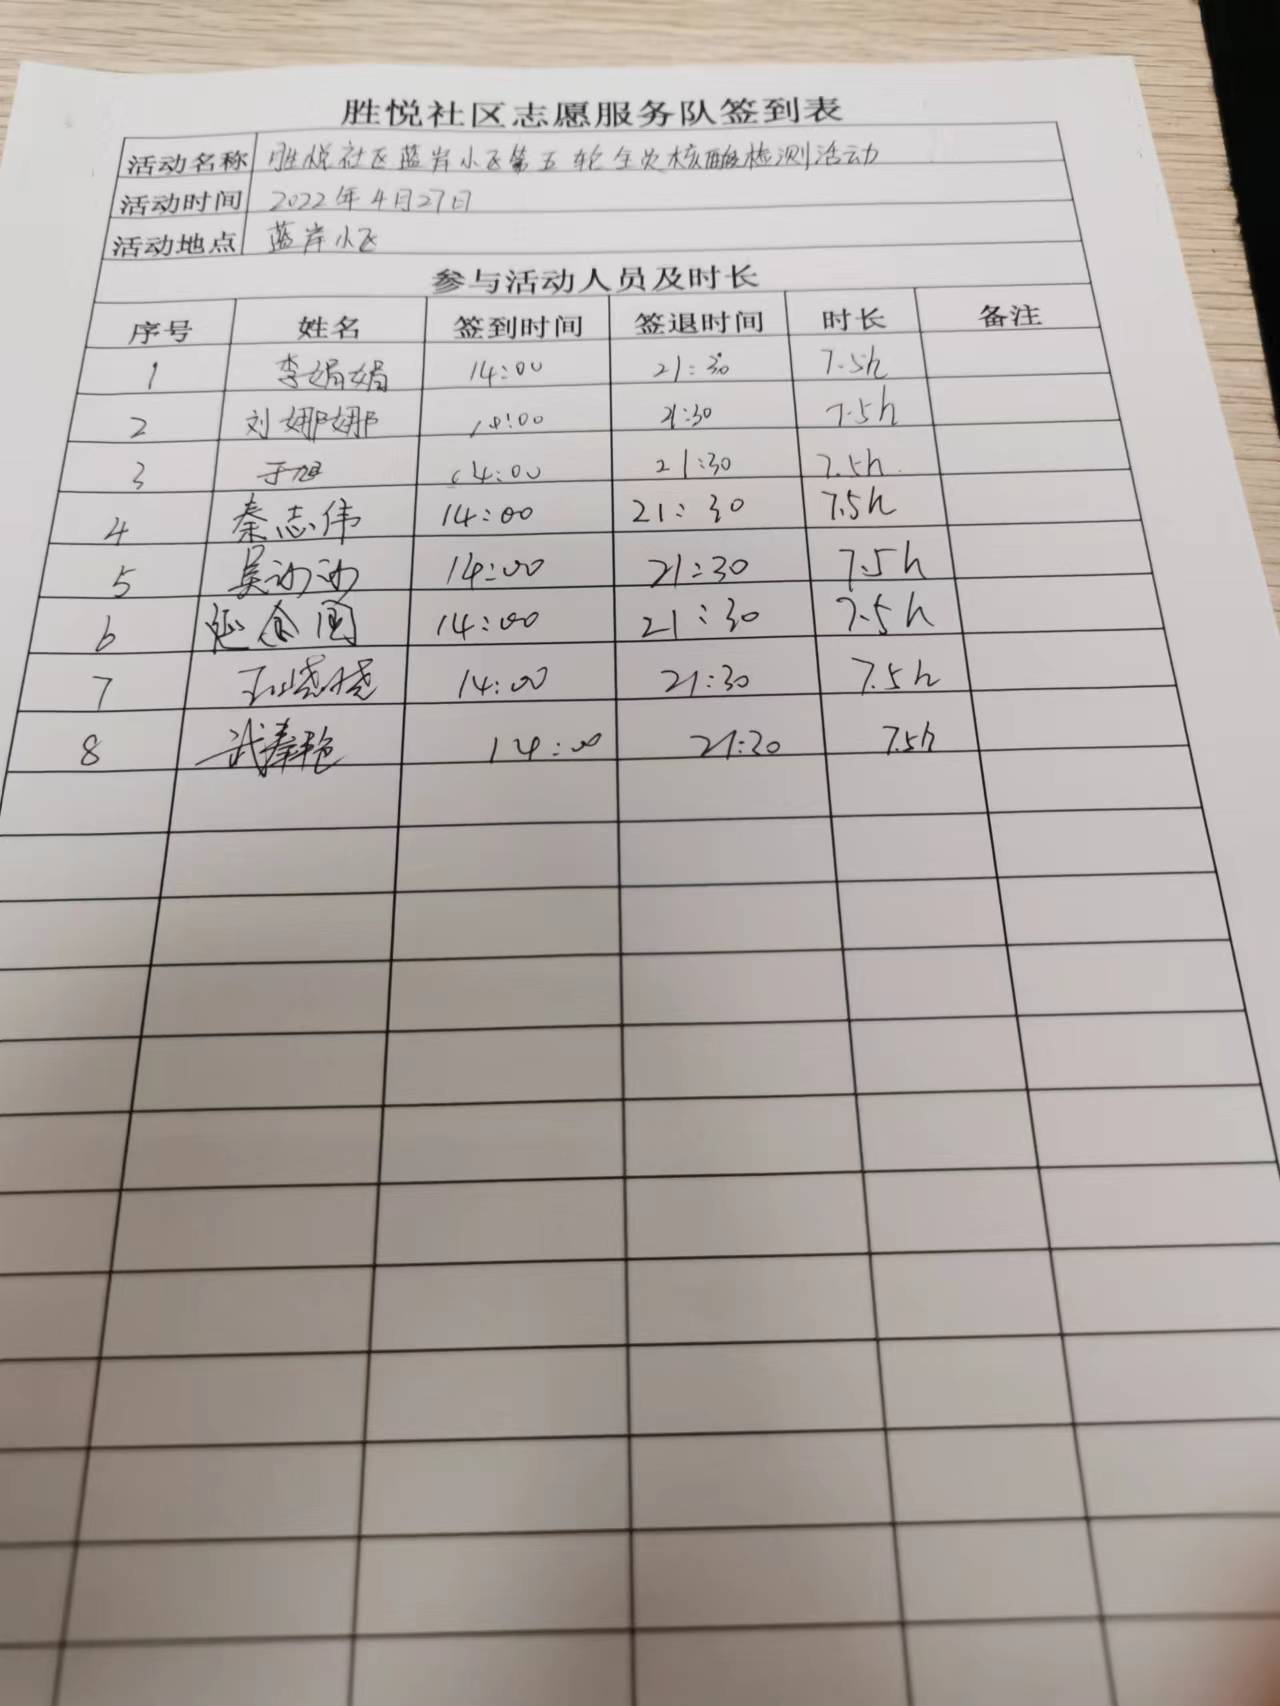 胜悦社区志愿服务队签到表
活动名称 胜悦社区蓝岸小区第五轮全员核酸检测活动
活动时间 2022年4月27日
活动地点 蓝岸小区
参与活动人员及时长
序号 姓名 签到时间 签退时间 时长 备注
1 李娟娟 14:00 21:30 7.5h
2 刘娜娜 14:00 21:30 7.5h
3 于旭 14:00 21:30 7.5h
4 秦志伟 14:00 21:30 7.5h
5 14:00 21:30 7.5h
6 14:00 21:30 7.5h
7 14:00 21:30 7.5h
8 14:00 21:30 7.5h